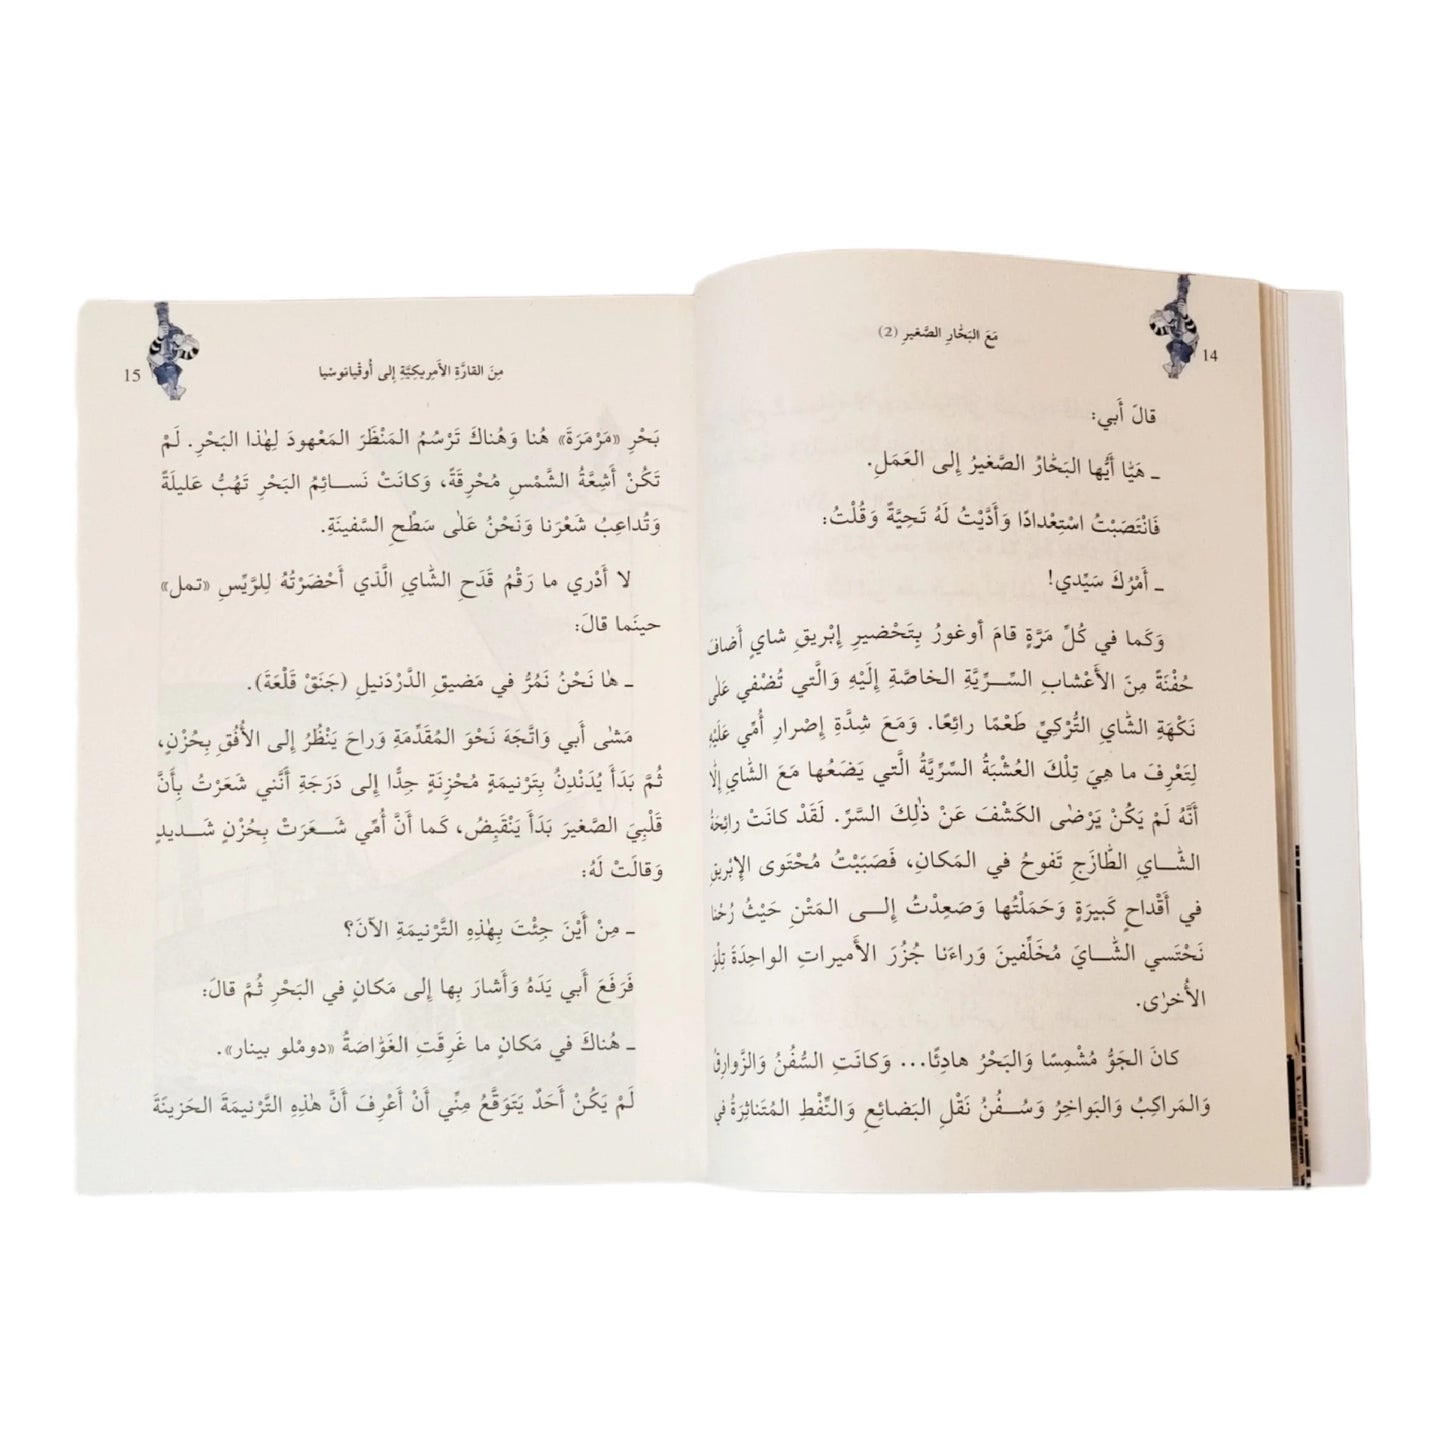 14
مَعَ البَحَّارِ الصَّغيرِ (2)
قالَ أَبي:
ـ هَيَّا أَيُّها البَحَّارُ الصَّغيرُ إِلى العَمَلِ.
فَانْتَصَبْتُ اسْتِعْدادًا وَأَدَّيْتُ لَهُ تَحِيَّةً وَقُلْتُ:
ـ أَمْرُكَ سَيِّدي!
وَكَما في كُلِّ مَرَّةٍ قامَ أوغورُ بِتَحْضيرِ إِبْريقِ شايٍ أَضافَ
حُفْنَةً مِنَ الأَعْشابِ السِّرِّيَّةِ الخاصَّةِ إِلَيْهِ وَالَّتي تُضْفي عَلى
نَكْهَةِ الشَّايِ التُّرْكِيِّ طَعْمًا رائِعًا. وَمَعَ شِدَّةِ إِصْرارِ أُمِّي عَلَيْهِ
لِتَعْرِفَ ما هِيَ تِلْكَ العُشْبَةُ السِّرِّيَّةُ الَّتي يَضَعُها مَعَ الشَّايِ إِلَّا
أَنَّهُ لَمْ يَكُنْ يَرْضٰى الكَشْفَ عَنْ ذٰلِكَ السَّرِّ. لَقَدْ كانَتْ رائِحَةُ
الشَّـايِ الطَّازَجِ تَفوحُ في المَكانِ، فَصَبَبْتُ مُحْتَوى الإِبْريقِ
في أَقْداحٍ كَبيرَةٍ وَحَمَلْتُها وَصَعِدْتُ إِلـى المَتْنِ حَيْثُ رُحْنا
نَحْتَسي الشَّـايَ مُخَلِّفينَ وَراءَنا جُزُرَ الأَميراتِ الواحِدَةَ تِلْوَ
الأُخرٰى.
كانَ الجَوُّ مُشْمِسًا وَالبَحْرُ هادِئًا... وَكانَتِ السُّفُنُ وَالزَّوارِقُ
وَالمَراكِبُ وَالبَواخِرُ وَسُـفُنُ نَقْلِ البَضائِعِ وَالنِّفْطِ المُتَناثِرَةُ في
15
مِنَ القارَّةِ الأَمِريكِيَّةِ إِلى أُوقْيانوسْيا
بَحْرِ «مَرْمَرَةَ» هُنا وَهُناكَ تَرْسُمُ المَنْظَرَ المَعْهودَ لِهٰذا البَحْرِ. لَمْ
تَكُنْ أَشِعَّةُ الشَّمْسِ مُحْرِقَةً، وَكانَتْ نَسـائِمُ البَحْرِ تَهُبُّ عَليلَةً
وَتُداعِبُ شَعْرَنا وَنَحْنُ عَلٰى سَطْحِ السَّفينَةِ.
لا أَدْري ما رَقْمُ قَدَحِ الشَّايِ الَّذي أَحْضَرْتُهُ لِلرَّيِّسِ «تمل»
حينَما قالَ:
ـ ها نَحْنُ نَمُرُّ في مَضيقِ الدَّرْدَنيلِ (جَنَقْ قَلْعَةَ).
مَشٰى أَبي وَاتَّجَهَ نَحْوَ المُقَدِّمَةِ وَراحَ يَنْظُرُ إِلى الأُفُقِ بِحُزْنٍ،
ثُمَّ بَدَأَ يُدَنْدِنُ بِتَرْنيمَةٍ مُحْزِنَةٍ جِدًّا إِلى دَرَجَةِ أَنَّني شَعَرْتُ بِأَنَّ
قَلْبِيَ الصَّغيرَ بَدَأَ يَنْقَبِضُ، كَما أَنَّ أُمِّي شَـعَرَتْ بِحُزْنٍ شَـديدٍ
وَقالَتْ لَهُ:
ـ مِنْ أَيْنَ جِئْتَ بِهٰذِهِ التَّرْنيمَةِ الآنَ؟
فَرَفَعَ أَبي يَدَهُ وَأَشارَ بِها إِلى مَكانٍ في البَحْرِ ثُمَّ قالَ:
ـ هُناكَ في مَكانٍ ما غَرِقَتِ الغَوَّاصَةُ «دومْلو بينار».
لَمْ يَكُنْ أَحَدٌ يَتَوَقَّعُ مِنِّي أَنْ أَعْرِفَ أَنَّ هٰذِهِ التَّرْنيمَةَ الحَزينَةَ